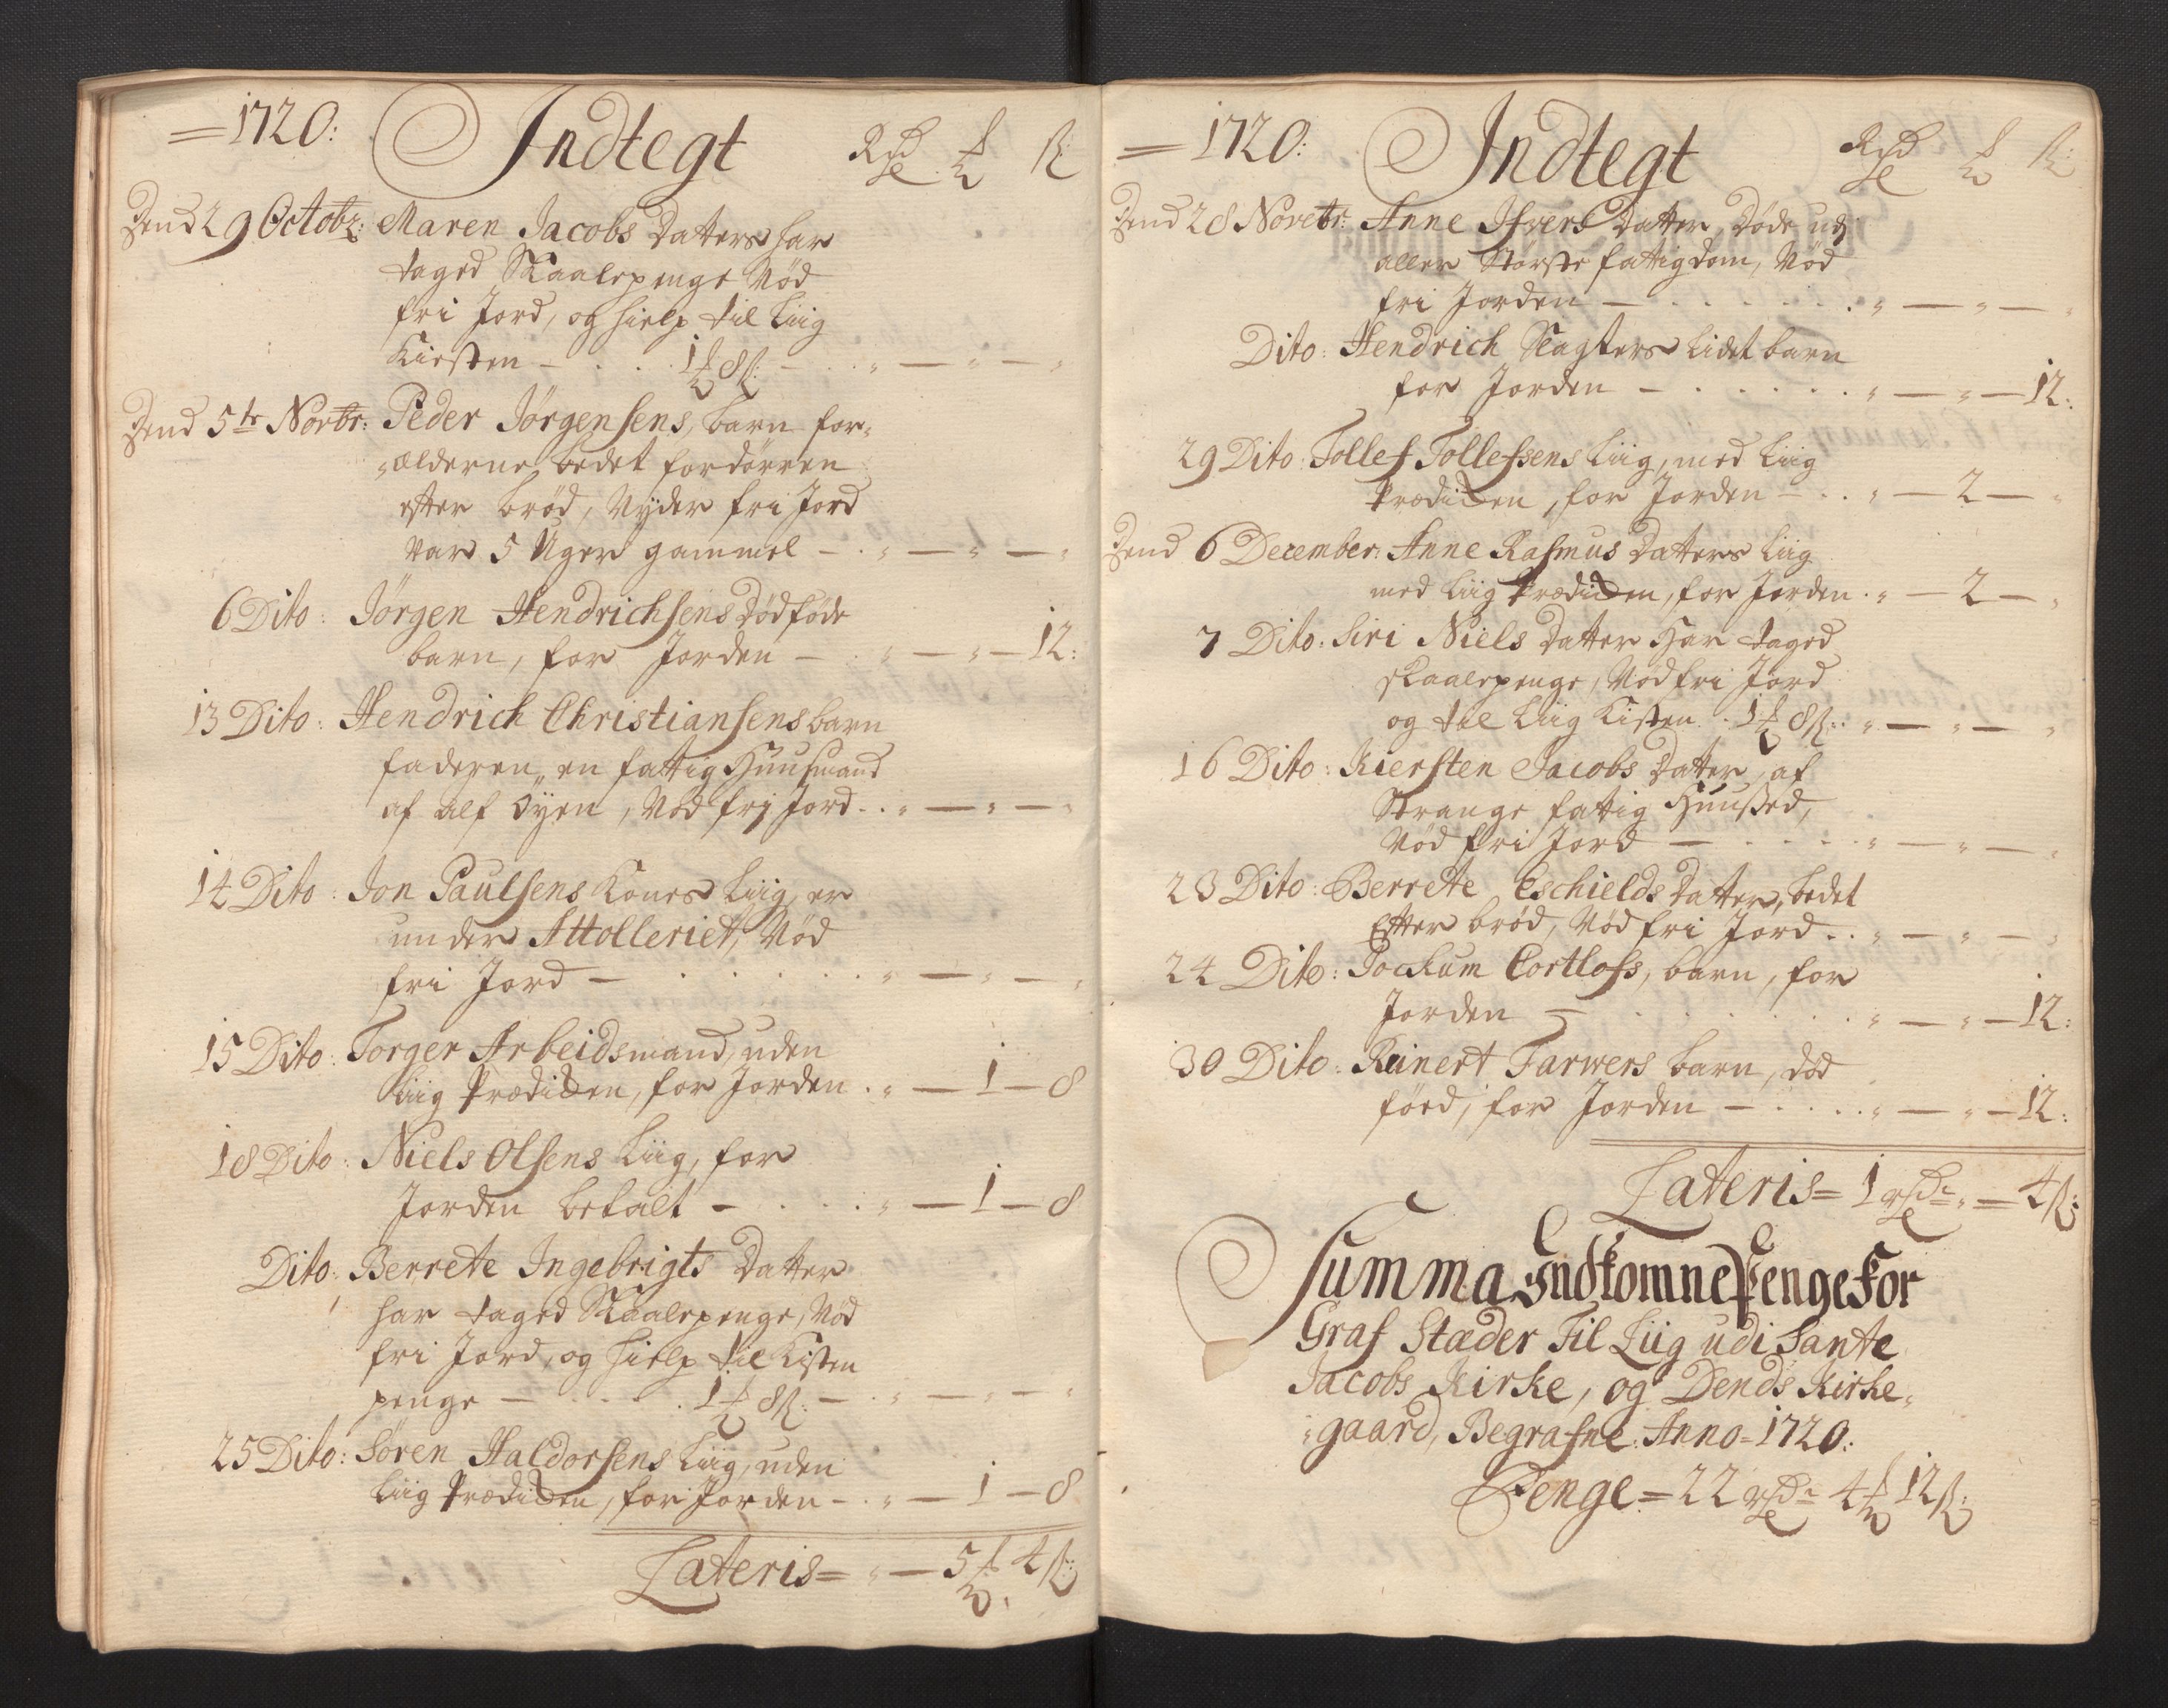 1720: Indtegt Rixd ₰ ß:
Dend 29 Octobr: Maren Jacobs Datters har
taged Skaalepenge Nød
fri Jord, og hielp til Liig
Kiesten — . . . . 1 ₰ 8 ß: — . . „ — „ — „
Dend 5te Novbr: Peder Jørgensens, barn for„
„ælderne, bedet fordørren
efter brød, Nyder fri Jord
var 5 Uger gammel — . „ — „ — „
6 Dito: Jørgen Hendrichsens Dødføde
barn, for Jorden — . „ — „ — 12:
13 Dito: Hendrich Christiansens barn
faderen, en fattig Huusmand
af alf Øyen, Nød frj Jord . . „ — „ — „
14 Dito: Jon Paulsens Kones Liig, er
under Attolleriet, Nød
fri Jord — . . . . . . „ — „ — „
15 Dito: Torger Arbeidsmand, uden
Liig Prædicken, for Jorden . „ — 1 — 8
18 Dito: Niels Olsens Liig, for
Jorden betalt — . . . . „ — 1 — 8
Dito: Berrete Ingebrigts Datter
har taged Skaalepenge, Nød
fri Jord, og hielp til Kisten
penge — . . . . 1 ₰ 8 ß: — . „ — „ — „
25 Dito: Søren Haldorsens Liig, uden
Liig Prædicken, for Jorden — . „ — 1 — 8
Lateris = „ — 5 ₰ 4 ß:
1720: Indtegt Rixd ₰ ß:
Dend 28 Novebr: Anne Ifvers Datter, Døde udj
aller Største fattigdom, Nød
fri Jorden — . . . . . . „ — „ — „
Dito: Hendrich Slagters Lidet barn
for Jorden — . . . . . . „ — „ — 12:
29 Dito: Tollef Tollefsens Liig, med Liig
Prædicken, for Jorden — . . „ — 2 — „
Dend 6 December: Anne Rasmus Datters Liig
med Liig Prædicken, for Jorden . „ — 2 — „
7 Dito: Siri Niels Datter Har taged
Skaalepenge, Nød fri Jord
og til Liig Kisten . 1 ₰ 8 ß: . „ — „ — „
16 Dito: Kiersten Jacobs Datter, af
Strange fattig Huused,
Nød fri Jord — . . . . . „ — „ — „
23 Dito: Berrete Eschields Datter, bedet
Efter brød, Nød fri Jord . . „ — „ — „
24 Dito: Jockum Cortloss, barn, for
Jorden — . . . . . . „ — „ — 12:
30 Dito: Reinert Farwers barn, død
føed, for Jorden — . . . . „ — „ — 12:
Lateris = 1 rixdr „ = 4 ß:
Summa Indkomne Penge For
Graf Stæder Til Liig udi Sante
Jacobs Kirke, og Dends Kirke„
„gaard, Begrafne Anno = 1720:
Penge = 22 rixdr 4 ₰ 12 ß: